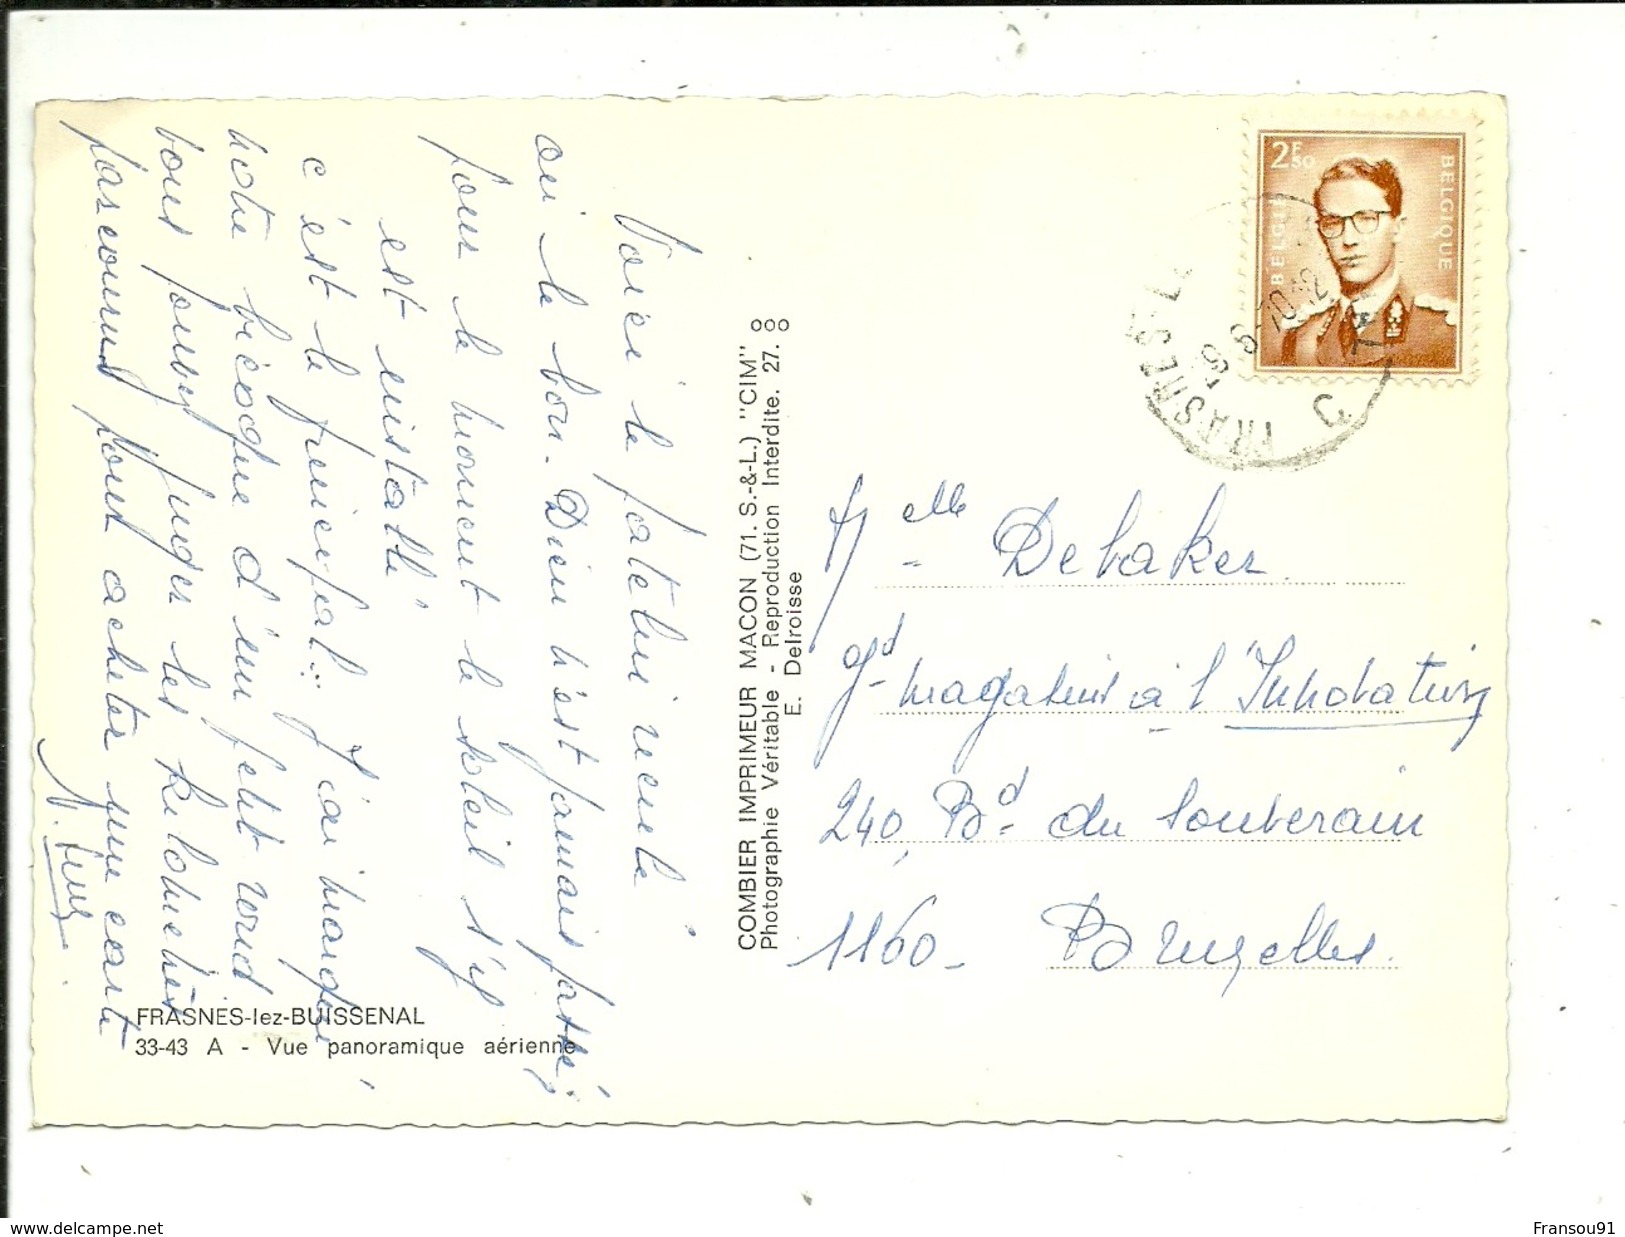 Voici le patelin renté
ou le bon. Dieu n'est jamais passé,
pour le moment le soleil s'y
est installé
c'est le principal... J'ai marqué
notre bicoque d'un petit rond
vous pouvez juger les kilomètres
parcourus pour acheter une carte
FRASNES-lez-BUISSENAL
33-43 A - Vue panoramique aérienne
COMBIER IMPRIMEUR MACON (71. S.-&-L.) "CIM"
Photographie Véritable - Reproduction Interdite. 27.
E. Delroisse
2F50
BELGIE
BELGIQUE
FRASNES-L
Melle Debaker
Gd magasins à l'Innovation
240, Bd du Souverain
1160 - Bruxelles.
www.delcampe.net
Fransou91